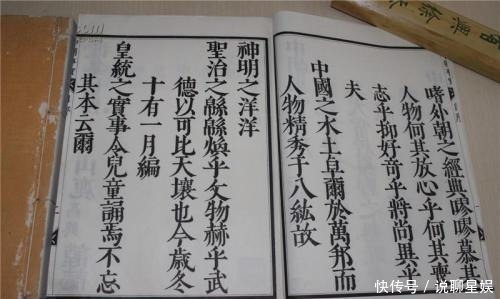 嗜外朝之經典嘐嘐慕其
人物何其放心乎何其喪
志乎抑好奇乎將尚異乎
夫
中國之水土卓爾於萬邦而
人物精秀于八紘故
神明之洋洋
聖治之緜緜煥乎文物赫乎武
德以可比天壤也今歲冬
十有一月編
皇統之實事令兒童誦焉不忘
其本云爾
快传号 / 说聊星娱